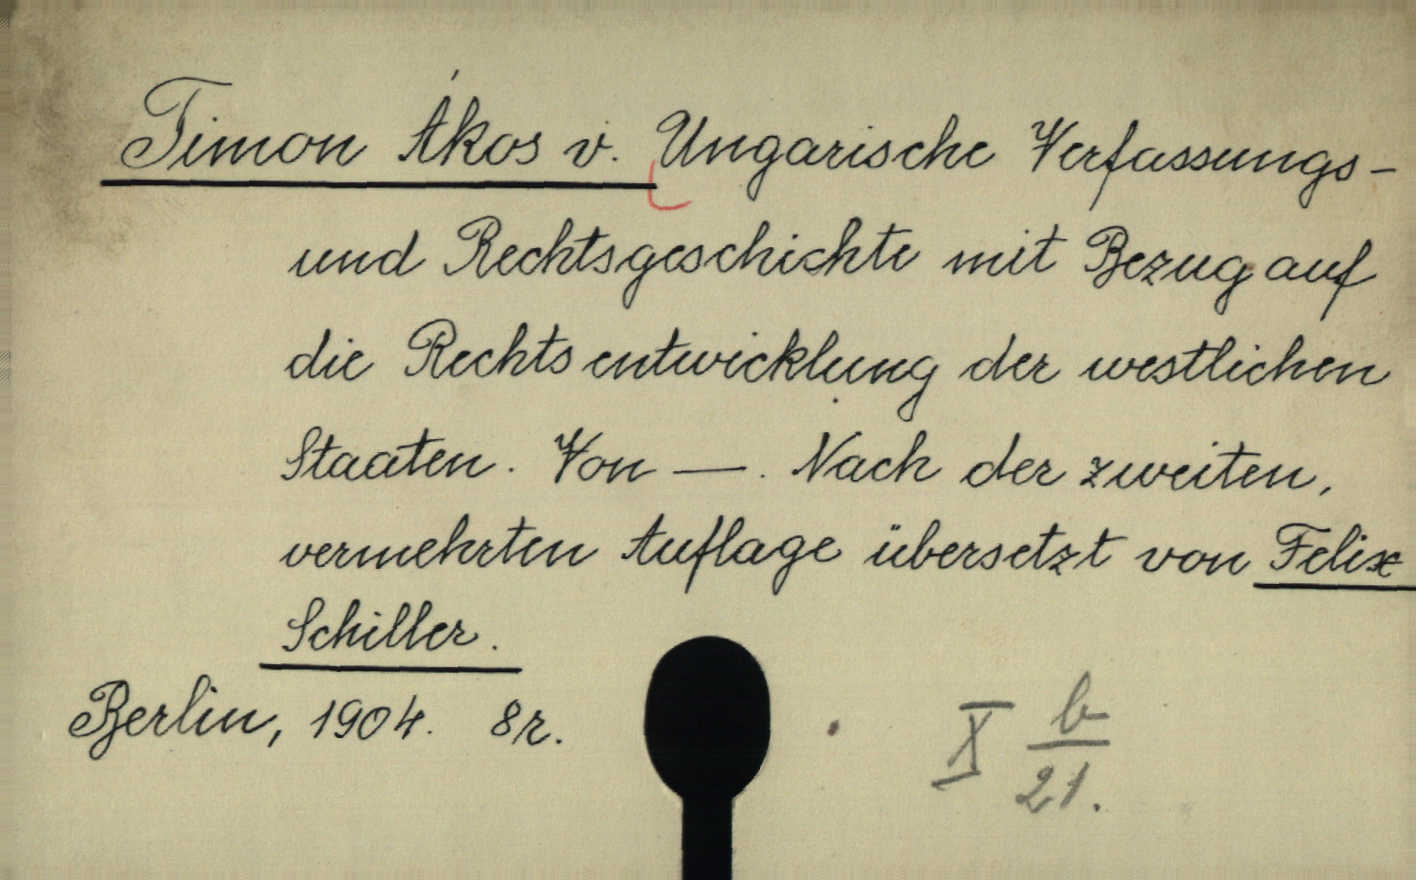 Timon Ákos v. Ungarische Verfassungs-
und Rechtsgeschichte mit Bezug auf
die Rechtsentwicklung der westlichen
Staaten. Von —. Nach der zweiten,
vermehrten Auflage übersetzt von Felix
Schiller.
Berlin, 1904. 8r.
X b/21.